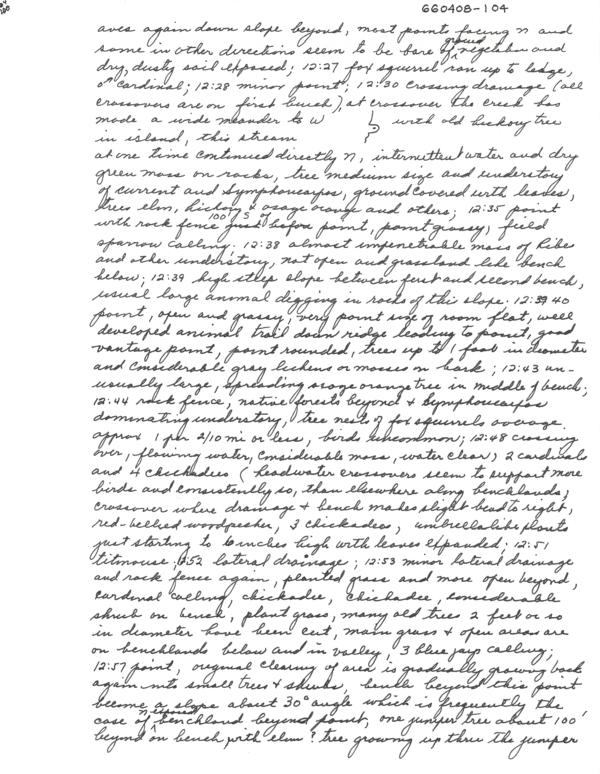 660408-104
aves again down slope beyond, most points facing n and
some in other directions seem to be bare of ground vegetation and
dry, dusty soil exposed; 12:27 fox squirrel ran up to ledge,
♂ cardinal; 12:28 minor point; 12:30 crossing drainage (all
crossovers are on first bench), at crossover the creek has
made a wide meander to W with old hickory tree
in island, this stream
at one time continued directly N, intermittent water and dry
green moss on rocks, tree medium size and understory
of currant and Symphoricarpos, ground covered with leaves,
trees elm, hickory & osage orange and others; 12:35 point
with rock fence 100' S of just before point, point grassy, field
sparrow calling; 12:38 almost impenetrable mass of Ribes
and other understory, not open and grassland like bench
below; 12:39 high steep slope between first and second bench,
usual large animal digging in rocks of this slope. 12:40
point, open and grassy, very point size of room flat, well
developed animal trail down ridge leading to point, good
vantage point, point rounded, trees up to 1 foot in diameter
and considerable gray lichens or mosses on bark; 12:43 un-
usually large, spreading osage orange tree in middle of bench;
12:44 rock fence, native forests beyond & Symphoricarpos
dominating understory, tree nests of fox squirrels average
approx 1 per 2/10 mi or less, birds uncommon; 12:48 crossing
over, flowing water, considerable moss, water clear, 2 cardinals
and 4 chickadees (headwater crossovers seem to support more
birds and consistently so, than elsewhere along benchlands;
crossover where drainage & bench makes slight bend to right,
red-bellied woodpecker, 3 chickadees, umbrellalike plants
just starting to 6 inches high with leaves expanded; 12:51
titmouse; 12:52 lateral drainage; 12:53 minor lateral drainage
and rock fence again, planted grass and more open beyond,
cardinal calling, chickadee, chickadee, considerable
shrub on bench, plant grass, many old trees 2 feet or so
in diameter have been cut, main grass & open areas are
on benchlands below and in valley, 3 blue jays calling;
12:57 point, original clearing of area is gradually growing back
again into small trees & shrubs, bench beyond this point
become a slope about 30° angle which is frequently the
case of n exposed benchland beyond point, one juniper tree about 100'
beyond on bench with elm? tree growing up thru the juniper